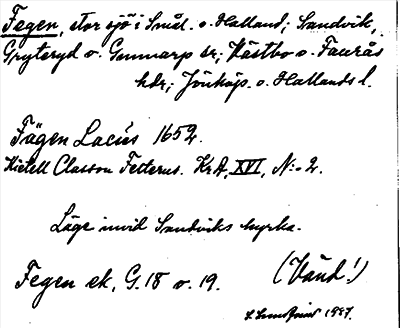 Fegen, stor sjö i Smål. o. Halland; Sandvik,
Gryteryd o. Gunnarp sr; Västbo o. Faurås
hdr; Jönköp. o. Hallands l.
Fägen Lacus 1652.
Kietell Classon Felterus. Kr.A, XVI, N:o 2.
Läge invid Sandviks kyrka.
Fegen ek. G. 18 v. 19. (Vänd!)
1947.